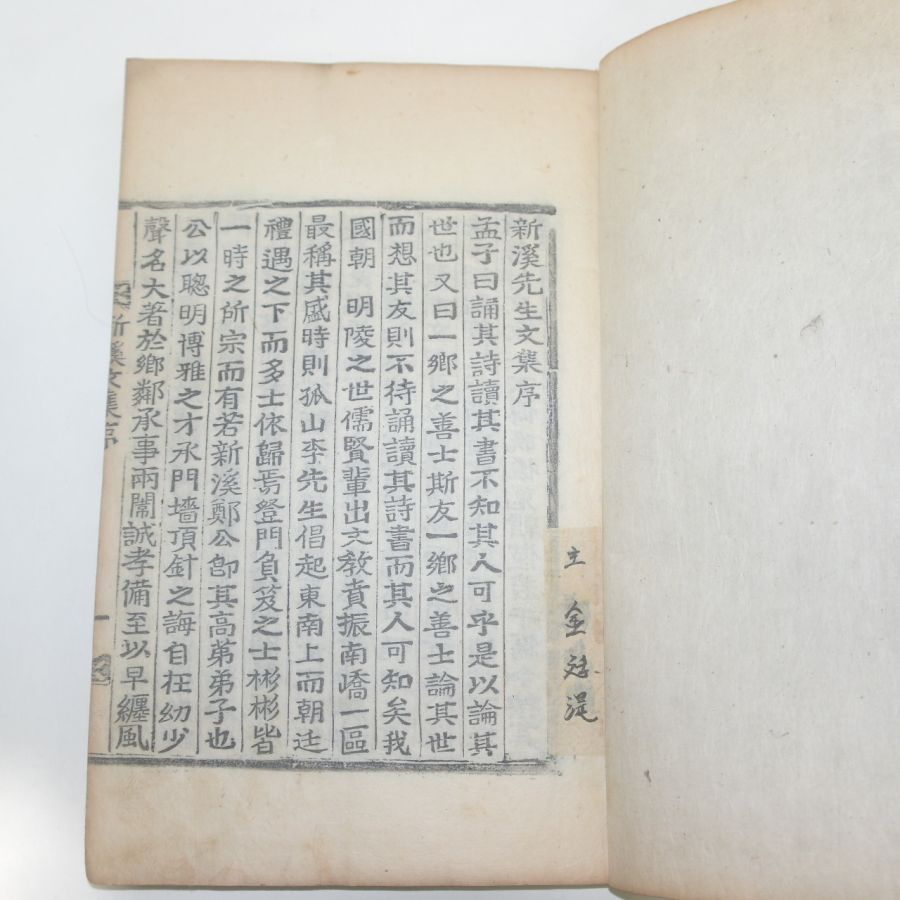 新溪先生文集序
孟子曰誦其詩讀其書不知其人可乎是以論其
世也又曰一鄉之善士斯友一鄉之善士論其世
而想其友則不待誦讀其詩書而其人可知矣我
國朝 明陵之世儒賢輩出文教賁振南嶠一區
最稱其盛時則孤山李先生倡起東南上而朝廷
禮遇之下而多士依歸焉登門負笈之士彬彬皆
一時之所宗而有若新溪鄭公卽其高弟弟子也
公以聰明博雅之才承門墻頂針之誨自在幼少
聲名大著於鄉鄰承事兩闈誠孝備至以早纏風
新溪文集序
一
主 金